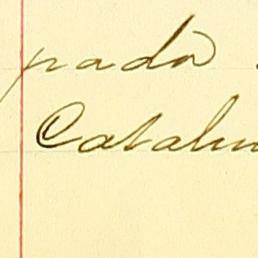 pada
Catalu